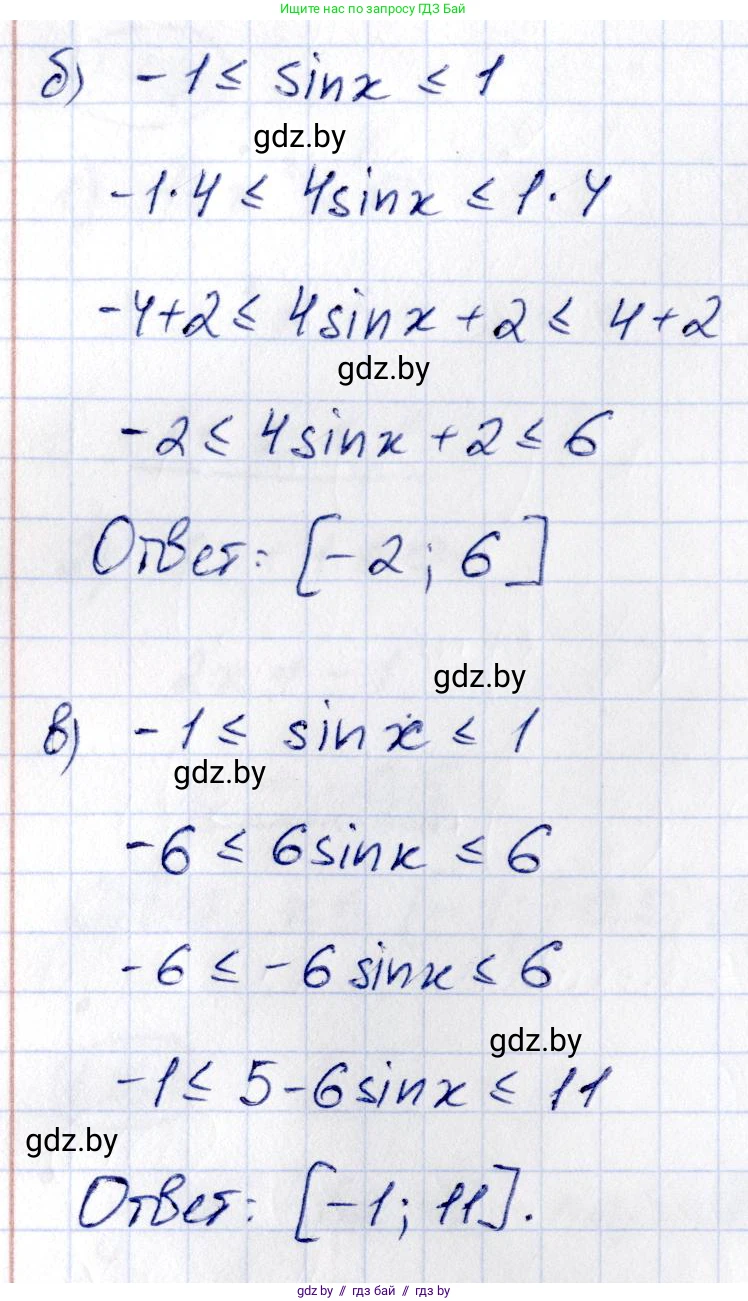 Ищите нас по запросу ГДЗ Бай
б) -1 ≤ sinx ≤ 1
gdz.by
-1·4 ≤ 4sinx ≤ 1·4
-4+2 ≤ 4sinx+2 ≤ 4+2
gdz.by
-2 ≤ 4sinx+2 ≤ 6
Ответ: [-2; 6]
gdz.by
в) -1 ≤ sinx ≤ 1
gdz.by
-6 ≤ 6sinx ≤ 6
-6 ≤ -6sinx ≤ 6
gdz.by
-1 ≤ 5-6sinx ≤ 11
gdz.by
Ответ: [-1; 11].
gdz.by // гдз бай // гдз by